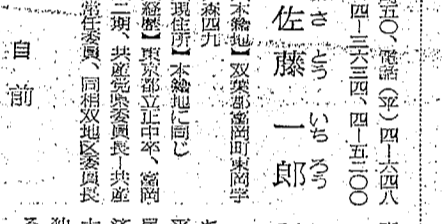 五〇、電話(平)四―六四八
四―三六三四、四―五二〇〇
さとういちろう
佐藤一郎
本籍地】双葉郡富岡町東岡字
森四九
現住所】本籍地に同じ
経歴】東京都立正中卒、富岡
二期、共産党県委員長―共産
常任委員、同相双地区委員長
自前